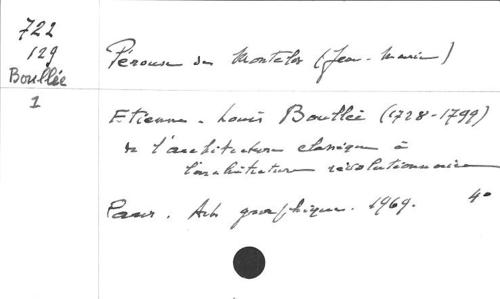 722
129
Boullée
1
Pérouse de Montclos (Jean-Marie)
Etienne-Louis Boullée (1728-1799)
de l'architecture classique à
l'architecture révolutionnaire
Paris. Arts graphiques. 1969. 4°